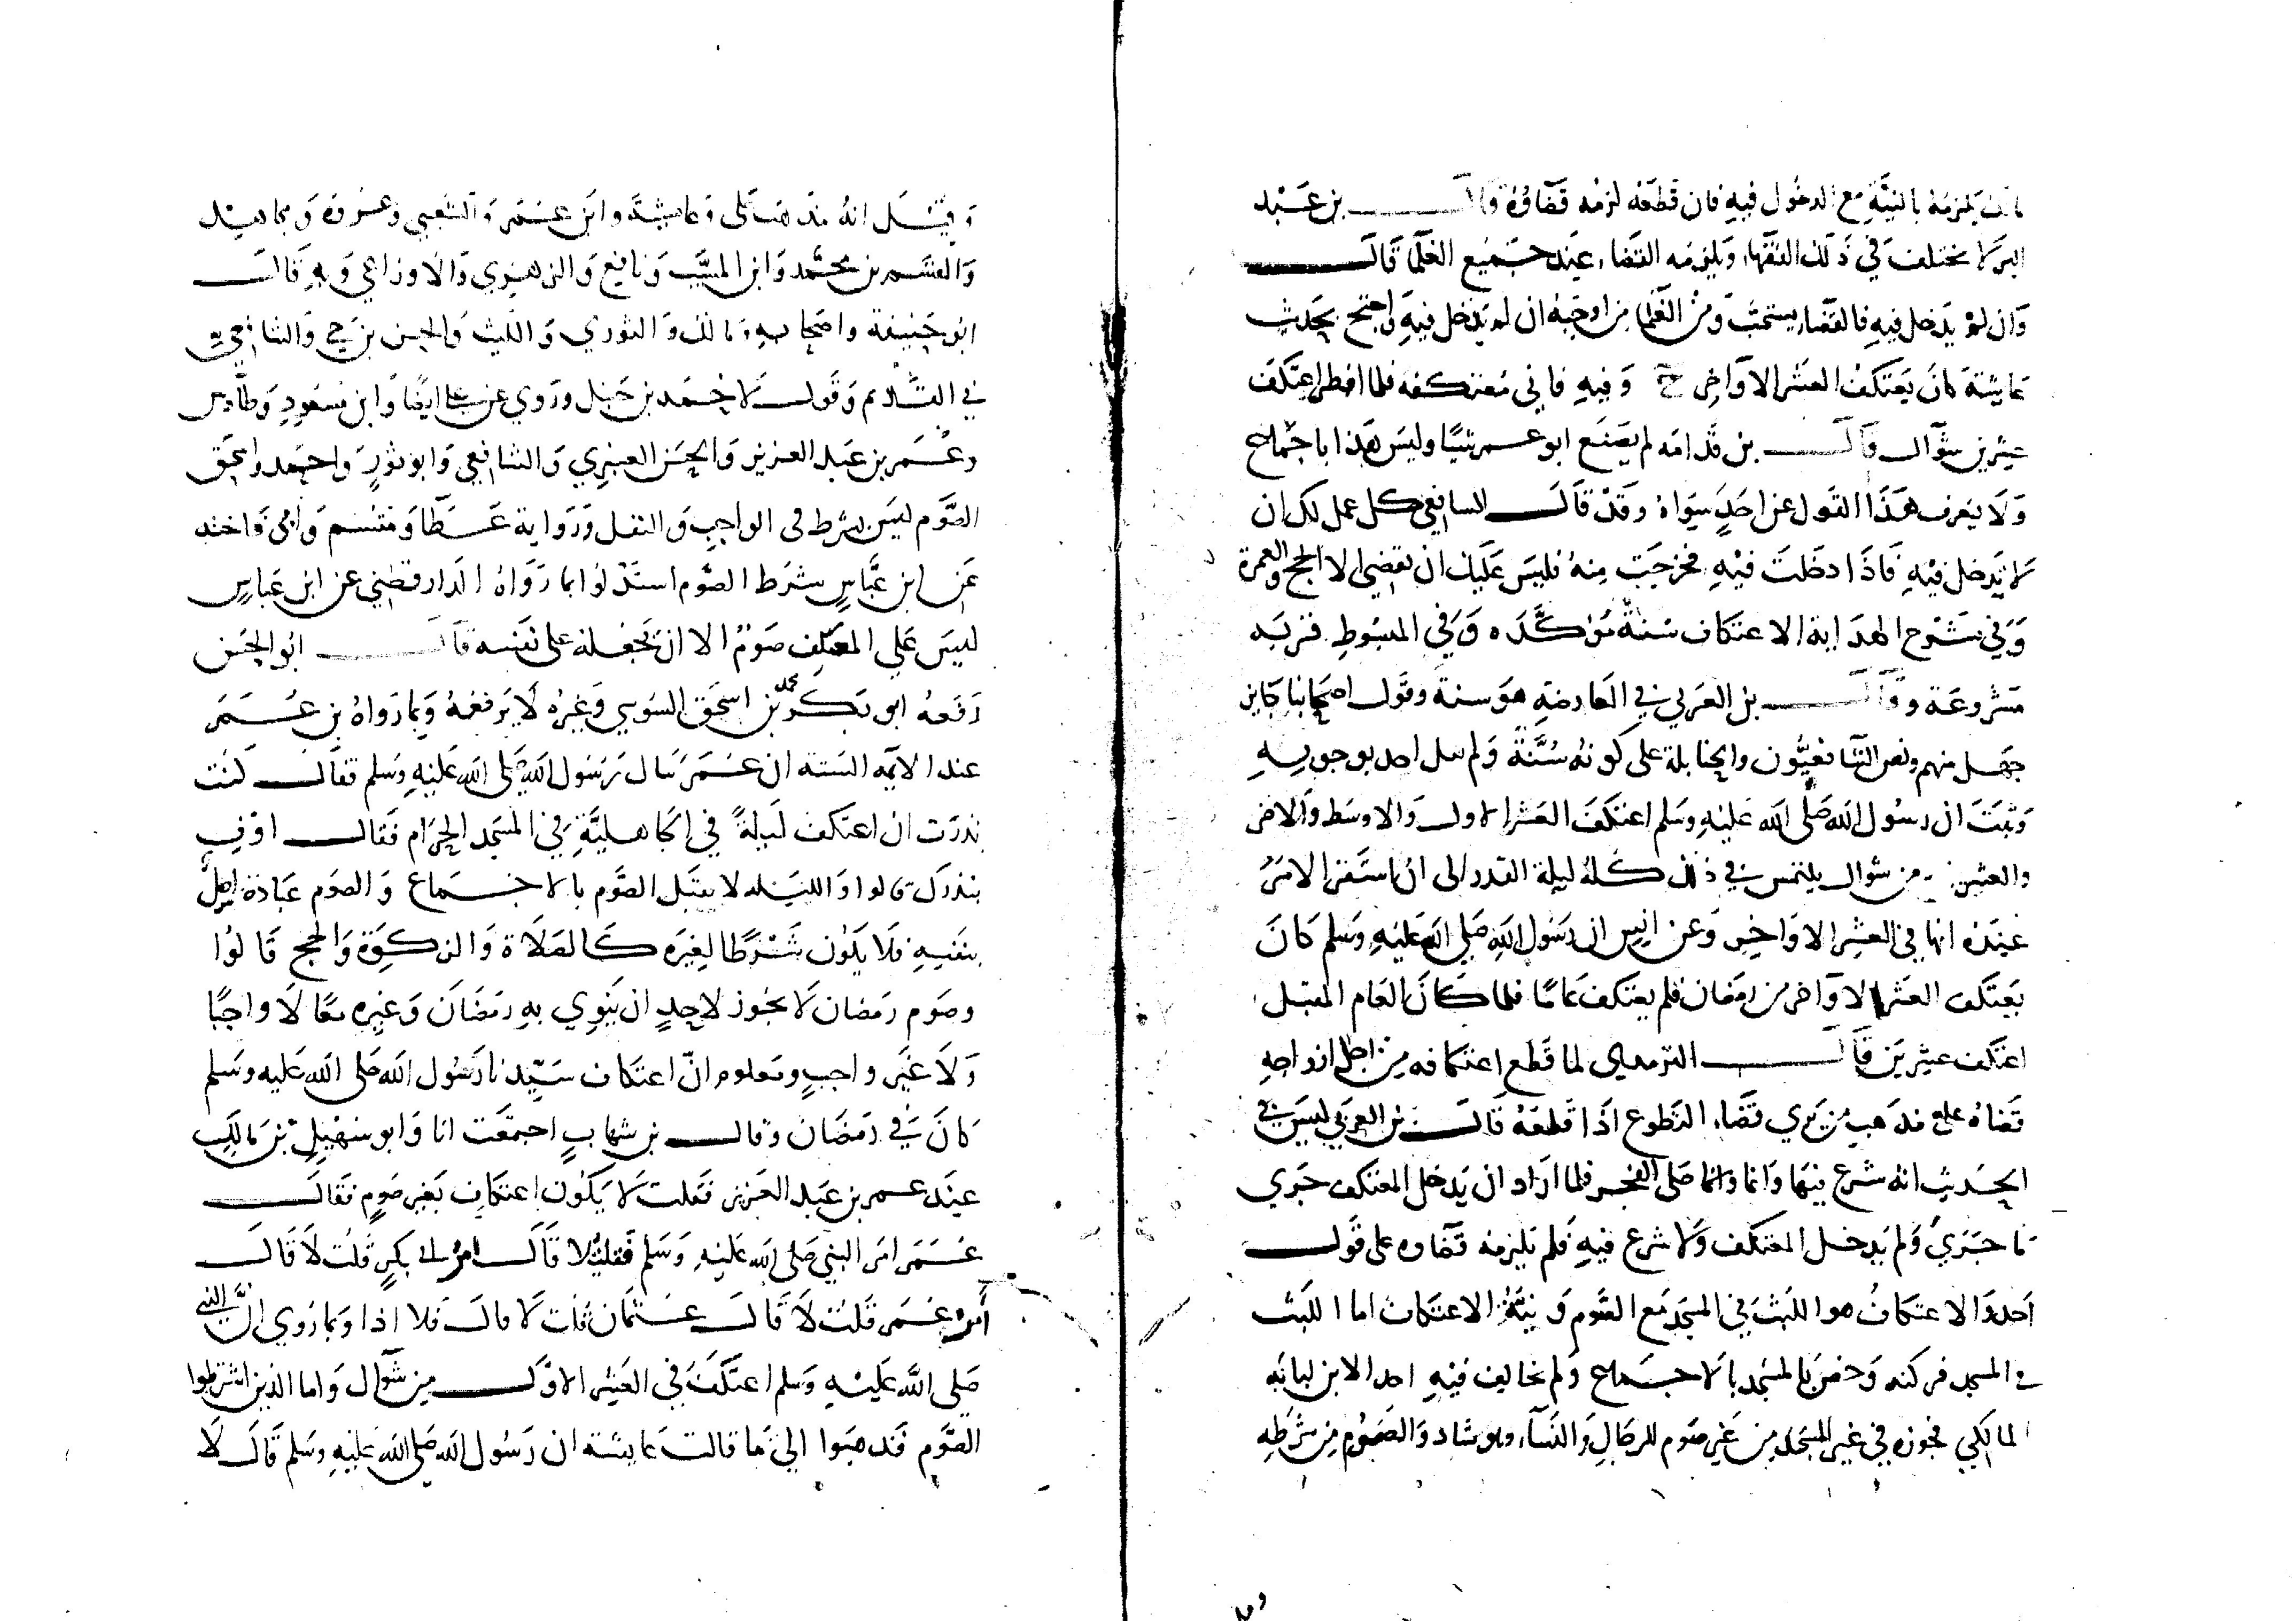 مالك يلزمه بالنية مع الدخول فيه فان قطعه لزمه قضاؤه وقال بن عبد
البر لا يختلف في ذلك الفقهاء ويلزمه القضاء عند جميع العلما قال
وان لم يدخل فيه فالقضاء يستحب ومن العلما من اوجبه ان لم يدخل فيه واحتج بحديث
عايشة كان يعتكف العشر الاواخر ح وفيه فاتى معتكفه فلما افطر اعتكف
عشرين شوال قال بن قدامه لم يصنع ابو عمر شيا وليس هذا باجماع
ولا يعرف هذا القول عن احد سواه وقد قال الشافعي كل عمل لك ان
لا تدخل فيه فاذا دخلت فيه فخرجت منه فليس عليك ان تقضي الا الحج والعمرة
وفي شروح الهداية الاعتكاف سنة مؤكده وفي المبسوط قربه
مشروعة وقال بن العربي في العارضة هو سنة وقول اصحابنا جايز
جهل منهم ونص الشافعيون والحنابلة على كونه سنة ولم يقل احد بوجوبه
وثبت ان رسول الله صلى الله عليه وسلم اعتكف العشر الاول والاوسط والاخر
والعشر من شوال يلتمس في ذلك كله ليلة القدر الى ان استقر الامر
عنده انها في العشر الاواخر وعن انس ان رسول الله صلى الله عليه وسلم كان
يعتكف العشر الاواخر من رمضان فلم يعتكف عاما فلما كان العام المقبل
اعتكف عشرين قال الترمذي لما قطع اعتكافه من اجل ازواجه
قضاه على مذهب من يرى قضاء التطوع اذا قطعه قال بن العربي ليس في
الحديث انه شرع فيها وانما وانما صلى الفجر فلما اراد ان يدخل المعتكف جرى
ما جرى ولم يدخل المعتكف ولا شرع فيه فلم يلزمه قضاوه على قول
احد والاعتكاف هو اللبث في المسجد مع الصوم ونية الاعتكاف اما اللبث
في المسجد فركنه وخص بالمسجد بالاجماع ولم يخالف فيه احد الا بن لبابه
المالكي فجوزه في غير المسجد من غير صوم للرجال والنساء وهو شاذ والصوم من شرطه
وقيل
وقيل انه مذهب على وعايشة وابن عمر والشعبي وعروة ومجاهد
والقسم بن محمد وابن المسيب ونافع والزهري والاوزاعي وبه قال
ابو حنيفة واصحابه ومالك والثوري والليث والحسن بن حي والشافعي
في القديم وقول لاحمد بن حنبل وروي عن علي ايضا وابن مسعود وطاوس
وعمر بن عبد العزيز والحسن العنبري والشافعي وابو ثور واحمد واسحق
الصوم ليس بشرط في الواجب والنفل ورواية عطا ومقسم وابي فاخته
عن ابن عباس شرط الصوم استدلوا بما رواه الدارقطني عن ابن عباس
ليس على المعتكف صوم الا ان يجعله على نفسه قال ابو الحسن
رفعه ابو بكر محمد بن اسحق السوسي وغيره لا يرفعه وبما رواه بن عمر
عند الايمه السته ان عمر سال رسول الله صلى الله عليه وسلم فقال كنت
نذرت ان اعتكف ليلة في الجاهلية في المسجد الحرام فقال اوف
بنذرك قالوا والليله لا تقبل الصوم بالاجماع والصوم عبادة اصل
بنفسه فلا يكون شرطا لغيره كالصلاة والزكوة والحج قالوا
وصوم رمضان لا يجوز لاحد ان ينوي به رمضان وغيره معا لا واجبا
ولا غير واجب ومعلوم ان اعتكاف سيدنا رسول الله صلى الله عليه وسلم
كان في رمضان وقال بن شهاب اجتمعت انا وابو سهيل بن مالك
عند عمر بن عبد العزيز فقلت لا يكون اعتكاف بغير صوم فقال
عمر امر النبي صلى الله عليه وسلم فقلت لا قال امر ابي بكر قلت لا قال
امر عمر قلت لا قال عثمان قلت لا قال فلا اذا وبما روي ان النبي
صلى الله عليه وسلم اعتكف في العشر الاول من شوال واما الذين اشترطوا
الصوم فذهبوا الي ما قالت عايشة ان رسول الله صلى الله عليه وسلم قال لا